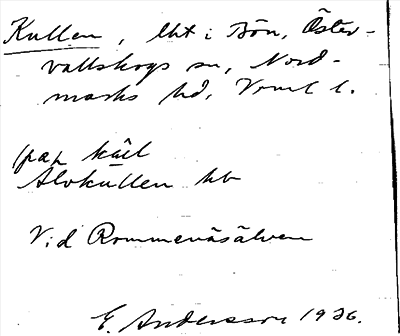 Kullen, lht i Bön, Öster-
vallskogs sn, Nord-
marks hd, Vrml l.
på kúl
Älvkullen hb
Vid Rommenäsälven
E. Andersson 1926.